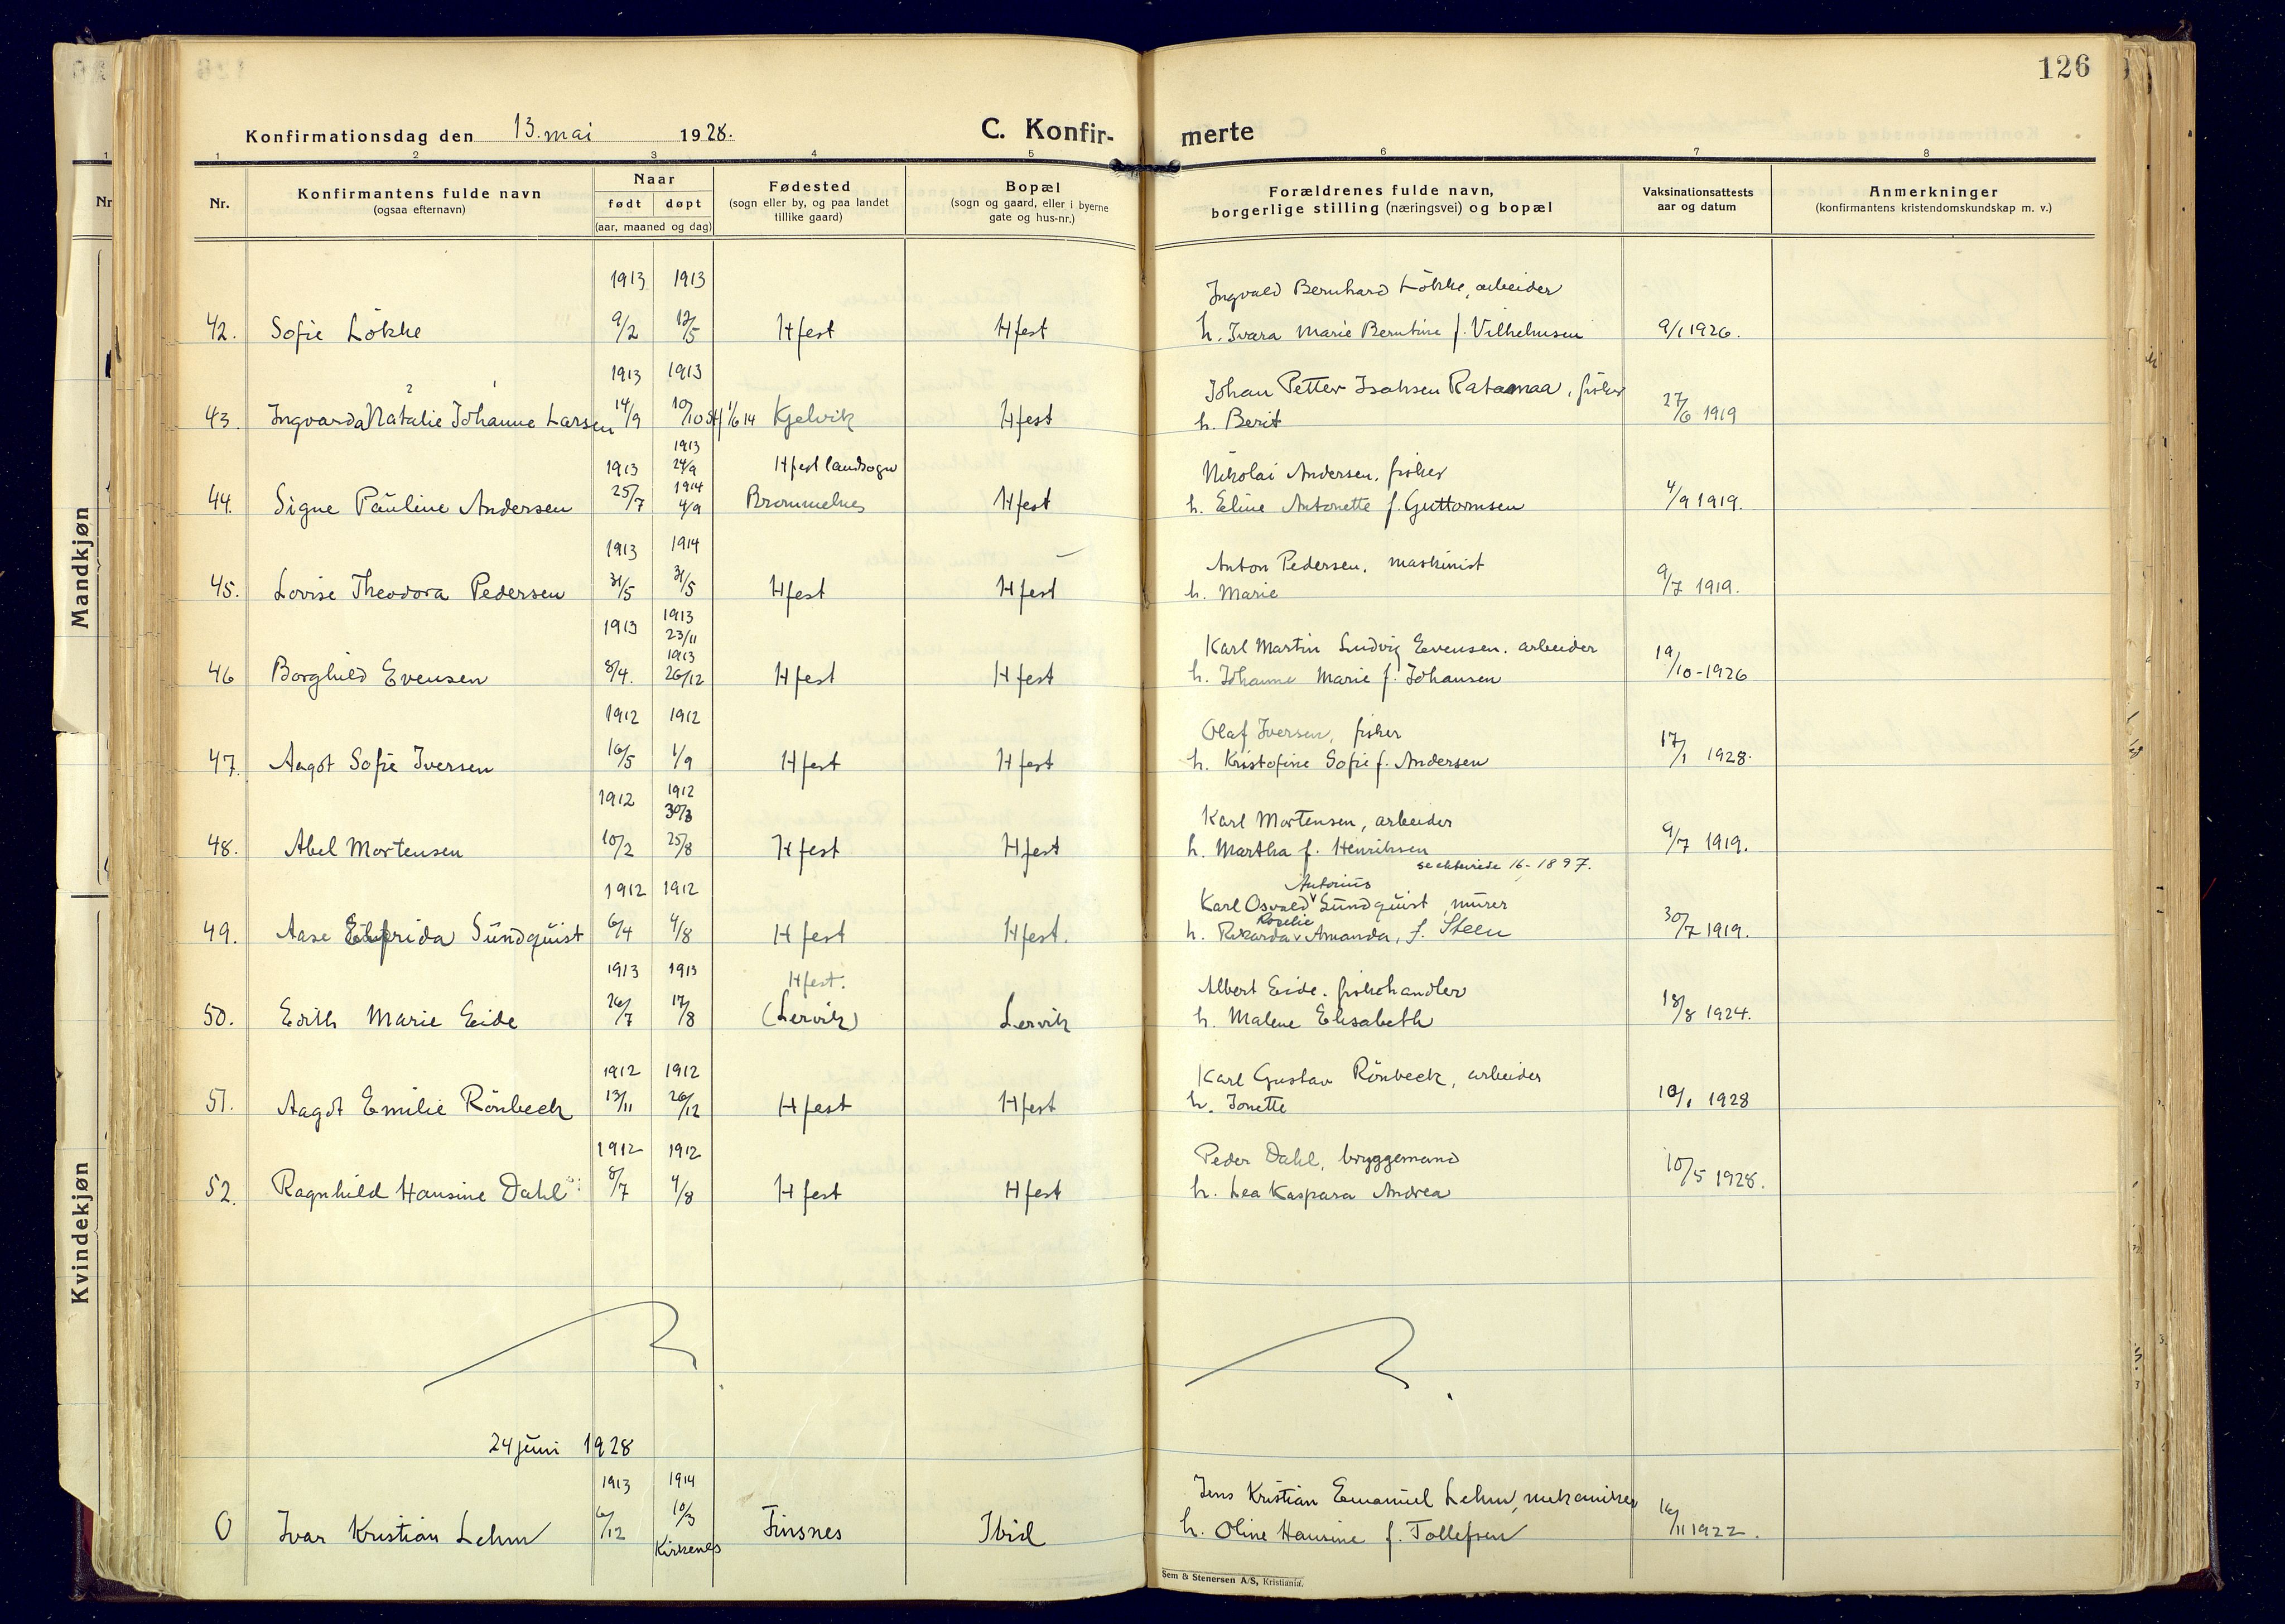 126
Konfirmationsdag den 13. mai 1928.
C. Konfir-
merte
1 2 3 4 5 6 7 8
Nr.
Konfirmantens fulde navn
(ogsaa efternavn)
Naar
født døpt
(aar, maaned og dag)
Fødested
(sogn eller by, og paa landet
tillike gaard)
Bopæl
(sogn og gaard, eller i byerne
gate og hus-nr.)
Forældrenes fulde navn,
borgerlige stilling (næringsvei) og bopæl
Vaksinationsattests
aar og datum
Anmerkninger
(konfirmantens kristendomskundskap m. v.)
Nr
Mandkjøn
Kvindekjøn
1913 1913 Ingvald Bernhard Lökke, arbeider
42. Sofie Lökke 9/2 12/5 Hfest Hfest h. Ivara Marie Berntine f. Vilhelmsen 9/1 1926.
1913 1913 Johan Petter Isaksen Ratamaa, fisker
43. Ingvarda Natalie Johanne Larsen 14/9 10/10 Stf 1/6 14 Kjelvik Hfest h. Berit 27/6 1919
1913 1913 24/9 Hfest landsogn Nikolai Andersen, fisker
44. Signe Pauline Andersen 25/7 1914 4/9 Brommelnes Hfest h. Eline Antonette f. Guttormsen 4/9 1919.
1913 1914 Anton Pedersen, maskinist
45. Lovise Theodora Pedersen 31/5 31/5 Hfest Hfest h. Marie 9/7 1919.
1913 1913 23/11 Karl Martin Ludvig Evensen. arbeider
46 Borghild Evensen 8/4. 1913 26/12 Hfest Hfest h. Johanne Marie f. Johansen 19/10-1926
1912 1912 Olaf Iversen, fisker
47. Aagot Sofie Iversen 16/5 1/9 Hfest Hfest h. Kristofine Sofie f. Andersen 17/1 1928.
1912 1912 30/3 Karl Mortensen, arbeider
48. Abel Mortensen 10/2 25/8 Hfest Hfest h. Martha f. Henriksen 9/7 1919.
se ekteviede 16-1897.
1912 1912 Karl Osvald Antonius Sundquist, murer
49. Aase Elfrida Sundquist 6/4 4/8 Hfest Hfest. h. Rikarda Rogelie Amanda, f. Steen 30/7 1919.
1913 1913 Hfest. Albert Eide. fiskehandler
50. Edith Marie Eide 26/7 17/8 (Lervik) Lervik h. Malene Elisabeth 18/8 1924.
1912 1912 Karl Gustav Rönbeck, arbeider
51. Aagot Emilie Rönbeck 13/11 26/12 Hfest Hfest h. Jonette 10/1 1928
1912 1912 Peder Dahl, bryggemand
52. Ragnhild Hansine Dahl 8/7 4/8 Hfest Hfest h. Lea Kaspara Andrea 10/5 1928.
24 juni 1928
1913 1914 Jens Kristian Emanuel Lehm, mekaniker
0 Ivar Kristian Lehm 6/12 10/3 Finsnes Ibid h. Oline Hansine f. Tollefsen 16/11 1922.
Kirkenes
Sem & Stenersen A/S, Kristiania.